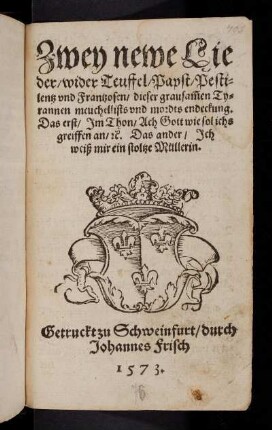 Zwey newe Lie
der/ wider Teuffel/ Papst/ Pesti-
lentz vnd Frantzosen/ dieser grausamen Ty-
rannen meuchellists vnd mordts endeckung.
Das erst/ Im Thon/ Ach Gott wie sol ichs
greiffen an/ ꝛc. Das ander/ Jch
weiß mir ein stoltze Müllerin.
Getruckt zu Schweinfurt/ durch
Johannes Frisch
1573.